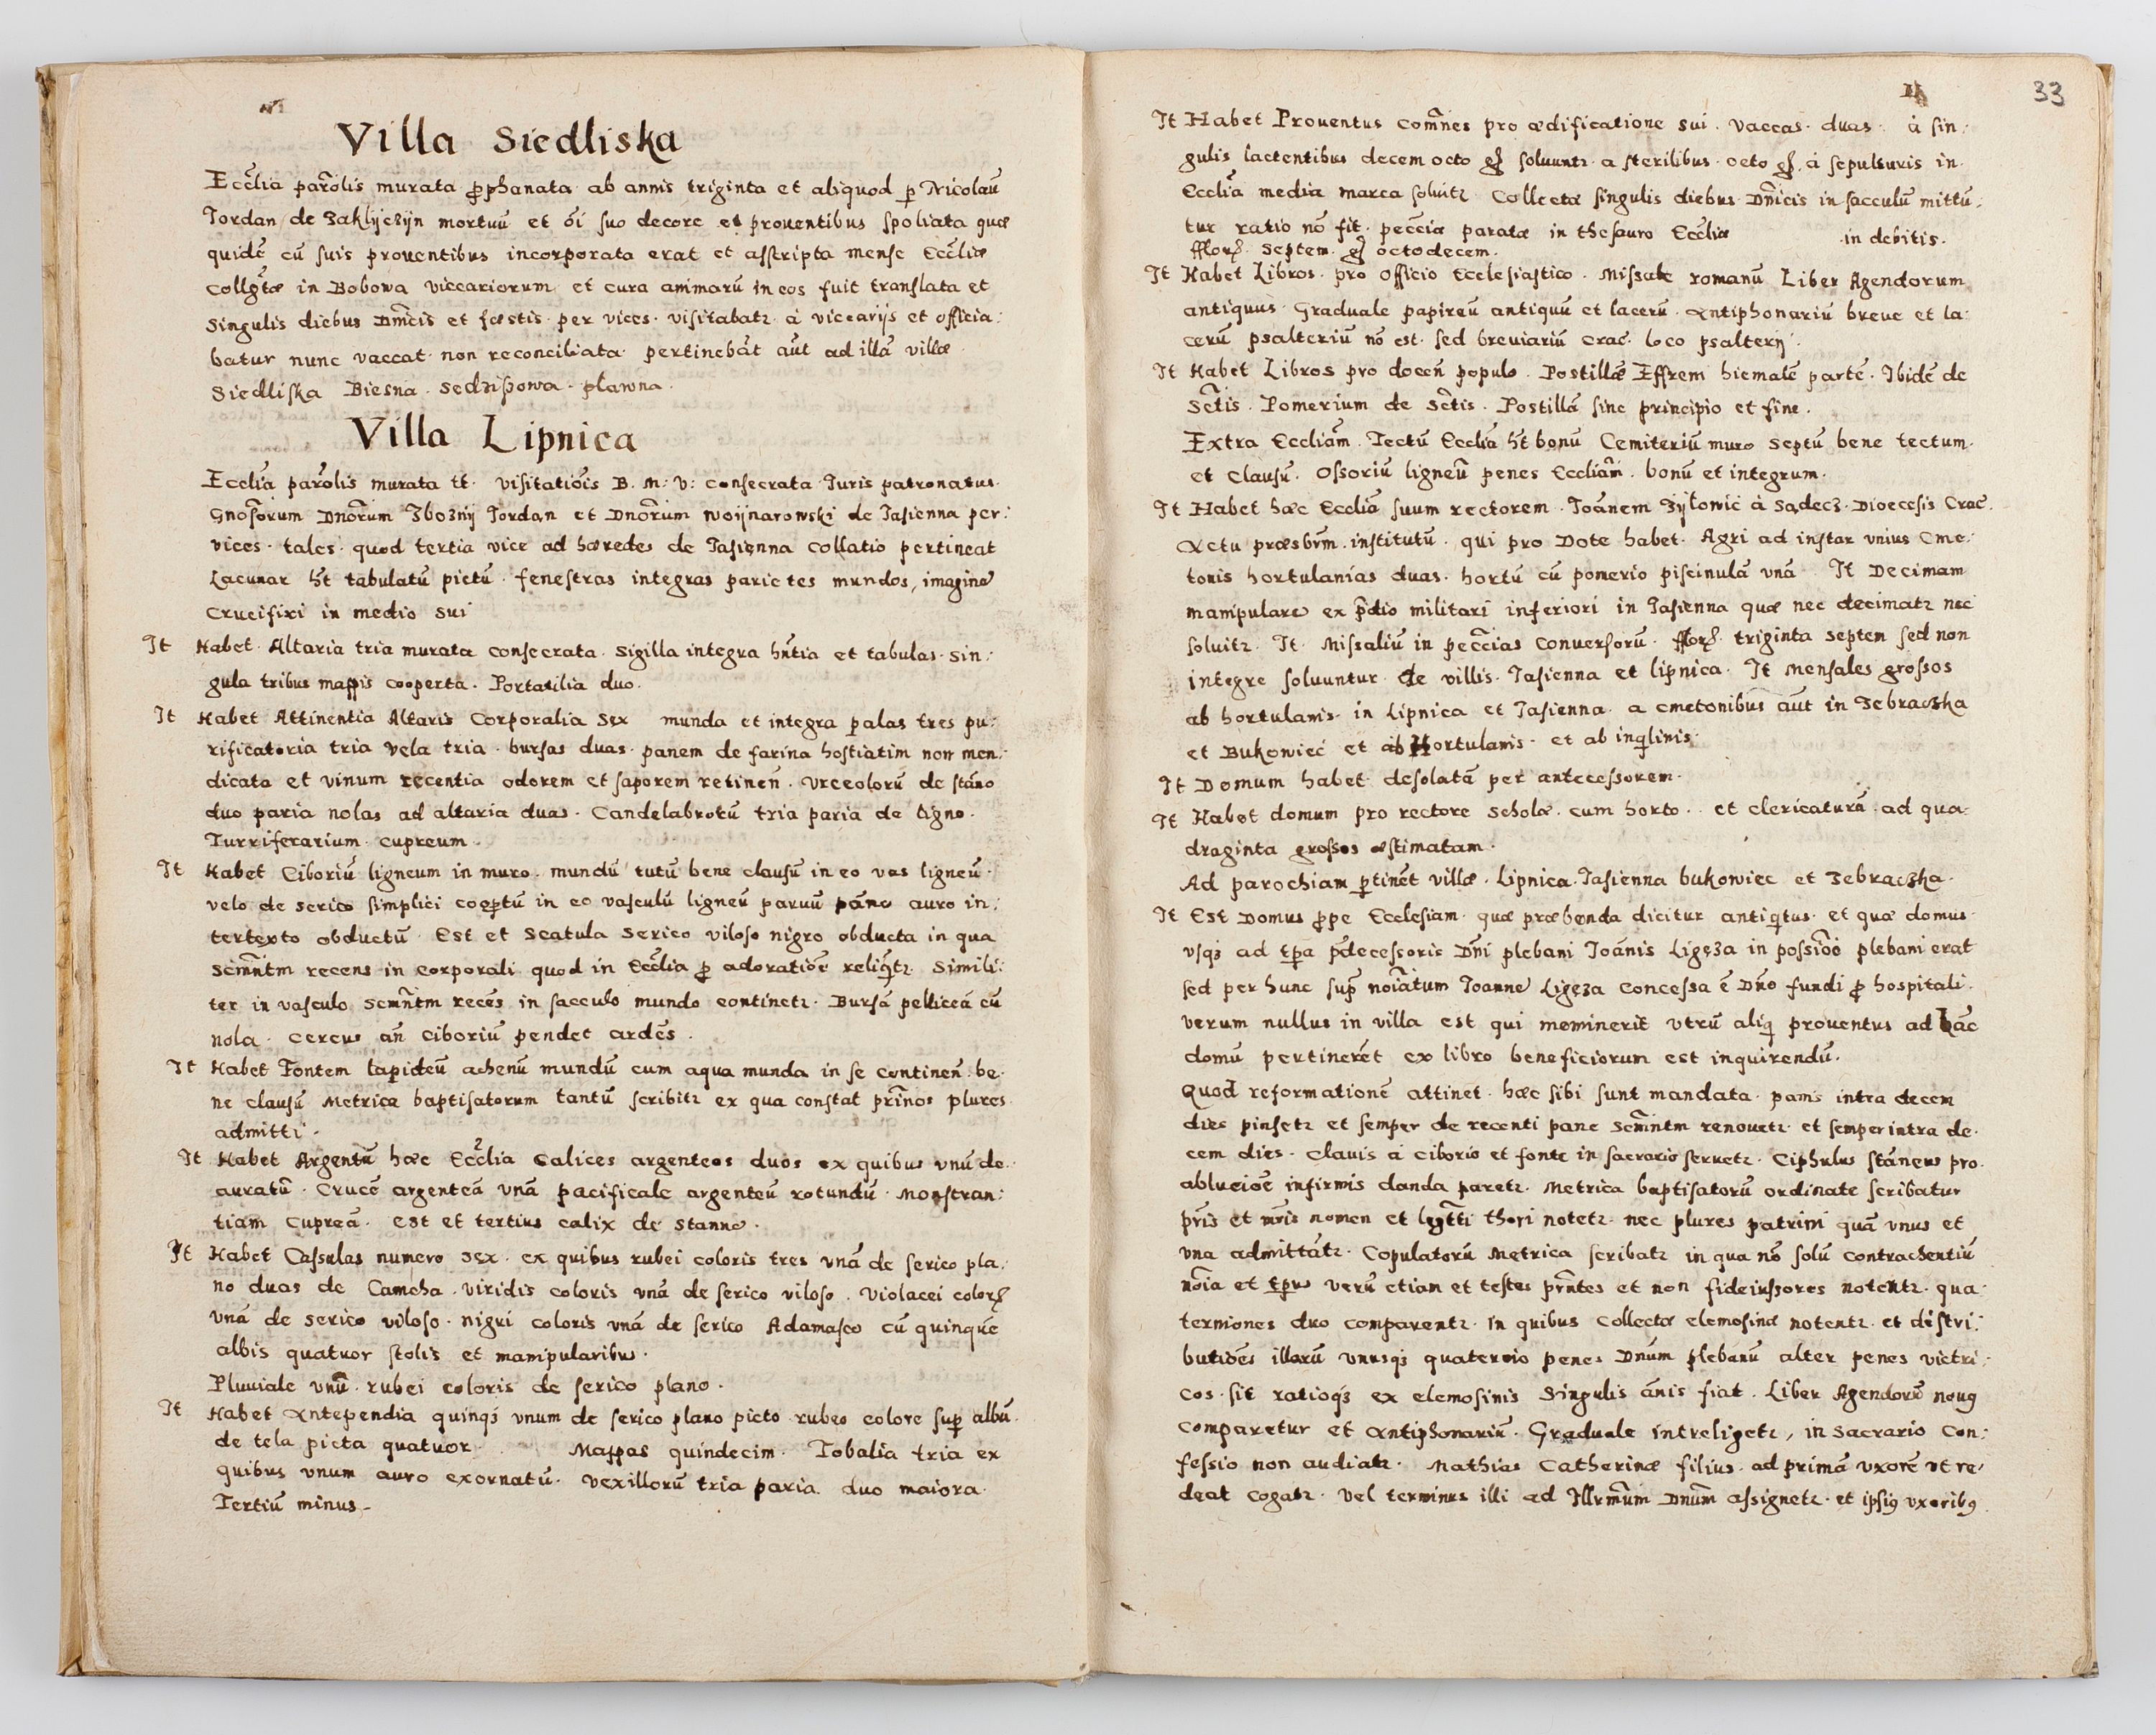 Villa Siedliska
Eccłia parołis murata ꝓphanata ab annis triginta et aliquod ꝑ Nicolaū
Jordan de Zaklijczijn mortuū et oī suo decore et prouentibus spoliata quæ
quidē cū suis prouentibus incorporata erat et asscripta mense Eccłiæ
collgtæ in Bobowa viccariorum et cura animarū in eos fuit translata et
singulis diebus Dm̃cis et fæstis per vices visitabatr à viccarijs et officia:
batur nunc vaccat non reconciliata pertinebāt aūt ad illā villæ
Siedliska Biesna Sedziszowa pławna.
Villa Lipnica
Eccłia parołis murata tt. visitatiōis B. M: V: consecrata Juris patronatus
Gnosorum Dnorum Zboznij Jordan et Dnorum Woijnarowski de Jasienna per:
vices tales quod tertia vice ad hæredes de Jasienna collatio pertineat
Lacunar ht tabulatū pictū fenestras integras parietes mundos, imaginē
crucifixi in medio sui
It Habet Altaria tria murata consecrata sigilla integra hñtia et tabulas sin:
gula tribus mappis cooperta. Portatilia duo.
It Habet Attinentia Altaris Corporalia sex munda et integra palas tres pu:
rificatoria tria vela tria bursas duas panem de farina hostiatim non men:
dicata et vinum recentia odorem et saporem retinen̄. Urceolorū de stāno
duo paria nolas ad altaria duas. Candelabrorū tria paria de ligno.
Turriferarium cupreum.
It Habet Ciboriū ligneum in muro mundū tutū bene clausū in eo vas ligneū
velo de serico simplici cooꝑtū in eo vasculū ligneū paruū pāno auro in:
tertexto obductū Est et Scatula serico viloso nigro obducta in qua
scm̃ntm recens in corporali quod in Eccłia ꝓ adoratiōe reliqitr Simili:
ter in vasculo scm̃ntm recēs in sacculo mundo continetr. Bursā pelliceā cū
nola. cereus añ ciboriū pendet ardēs.
It Habet Fontem lapideū achenū mundū cum aqua munda in se continen̄ be
ne clausū Metrica baptisatorum tantū scribitr ex qua constat prñnos plures
admitti.
It Habet Argentū hæc Eccłia calices argenteos duos ex quibus vnū de
auratū. Crucē argenteā vnā pacificale argenteū rotundū Monstran:
tiam cupreā. est et tertius calix de stanno.
It Habet Casulas numero sex ex quibus rubei coloris tres vnā de serico pla:
no duas de Camcha viridis coloris vnā de serico viloso. Violacei colorꝭ
vnā de serico viloso nigri coloris vnā de serico Adamasco cū quinque
albis quatuor stolis et manipularibus.
Pluuiale vnū rubei coloris de serico plano.
It Habet Antependia quinqꝫ vnum de serico plano picto rubeo colore suꝑ albū
de tela picta quatuor Mappas quindecim. Tobalia tria ex
quibus vnum auro exornatū. vexillorū tria paria duo maiora
Tertiū minus
33
It Habet Prouentus com̃nes pro ædificatione sui vaccas duas à sin:
gulis lactentibus decem octo gꝭ soluuntr a sterilibus octo gꝭ. à sepulturis in
Eccłia media marca soluitr Collectæ singulis diebus Dm̃cis in sacculū mittū:
tur ratio nō fit. peccīa paratæ in thesauro Eccłiæ in debitis.
fflorꝭ septem gꝭ octodecem.
It Habet Libros pro officio Ecclesiastico. Missale romanū Liber Agendorum
antiquus Graduale papireū antiquū et lacerū Antiphonariū breue et la:
cerū psalteriū nō est sed breviariū crac̄. loco psalterij.
It Habet Libros pro docen̄ populo. Postillā Effrem hiemalē partē. Ibidē de
Sctis. Pomerium de sctis. Postillā sine principio et fine.
Extra Eccłiam. Tectū Eccłia ht bonū Cemiteriū muro septū bene tectum
et clausū. Ossoriū ligneū penes Eccłiam bonū et integrum.
It Habet hæc Eccłia suum rectorem Joānem Zijtowic à Sądecz Dioecesis Crac̄.
Actu præsbrm institutū qui pro Dote habet Agri ad instar vnius Cme:
tonis hortulanias duas hortū cū pomerio piscinulā vnā It Decimam
manipularē ex ꝑdio militari inferiori in Jasienna quæ nec decimatr nec
soluitr. It Missaliū in peccīas conversorū. fflorꝭ triginta septem sed non
integre soluuntur de villis Jasienna et lipnica. It Mensales grossos
ab hortulanis in Lipnica et Jasienna a cmetonibus aūt in Zebraczka
et Bukowiec et ab Hortulanis et ab inqilinis
It Domum habet desolatā per antecessorem.
It Habet domum pro rectore scholæ cum horto et clericaturā ad qua:
draginta grossos æstimatam.
Ad parochiam ꝑtinēt villæ Lipnica Jasienna bukowiec et Zebraczka.
It Est Domus ꝓpe Ecclesiam quæ præbenda dicitur antiqitus et quæ domus
vsqꝫ ad tꝑa ꝑdecessoris Dn̄i plebani Joānis Ligęza in possiōe plebani erat
sed per hunc suꝑ noīatum Joannē Ligęza concessa ē Dn̄o fundi ꝓ hospitali
verum nullus in villa est qui meminerit vtrū aliq prouentus ad hāc
domū pertinerēt ex libro beneficiorum est inquirendū.
Quod reformationē attinet hæc sibi sunt mandata panis intra decem
dies pinsetr et semper de recenti pane scm̃ntm renouetr et semper intra de:
cem dies. clauis à ciborio et fonte in sacrario seruetr. Ciphulus stāneus pro
ablucioē infirmis danda paretr. Metrica baptisatorū ordinate scribatur
pr̄is et mr̄is nomen et legtti thori notetr nec plures patrini quā vnus et
vna admittātr. Copulatorū Metrica scribatr in qua nō solū contrachentiū
nōia et tꝑus verū etiam et testes prñtes et non fideiussores notentr. qua:
terniones duo comparentr in quibus collectæ elemosinæ notentr et distri:
butiōes illorū vnusqꝫ quaternio penes Dn̄um plebanū alter penes victri:
cos sit ratioqꝫ ex elemosinis singulis ānis fiat. Liber Agendorū nouꝯ
comparetur et Antiphonariū. Graduale intreligetr, in sacrario Con:
fessio non audiatr. Mathias Catherinæ filius ad primā vxorē vt re:
deat cogatr. vel terminus illi ad Illrm̃um Dn̄um assignetr et ipsiꝯ vxoribꝯ